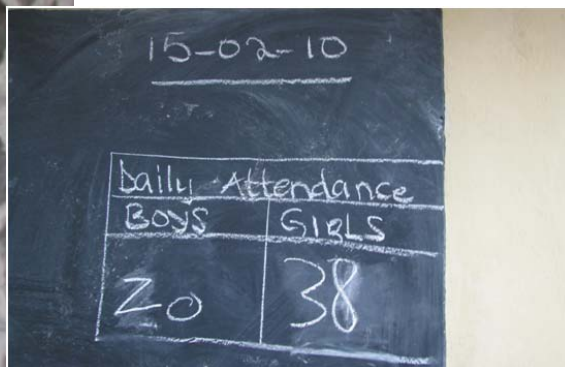 15-02-10
Daily Attendance
BOYS GIRLS
20 38